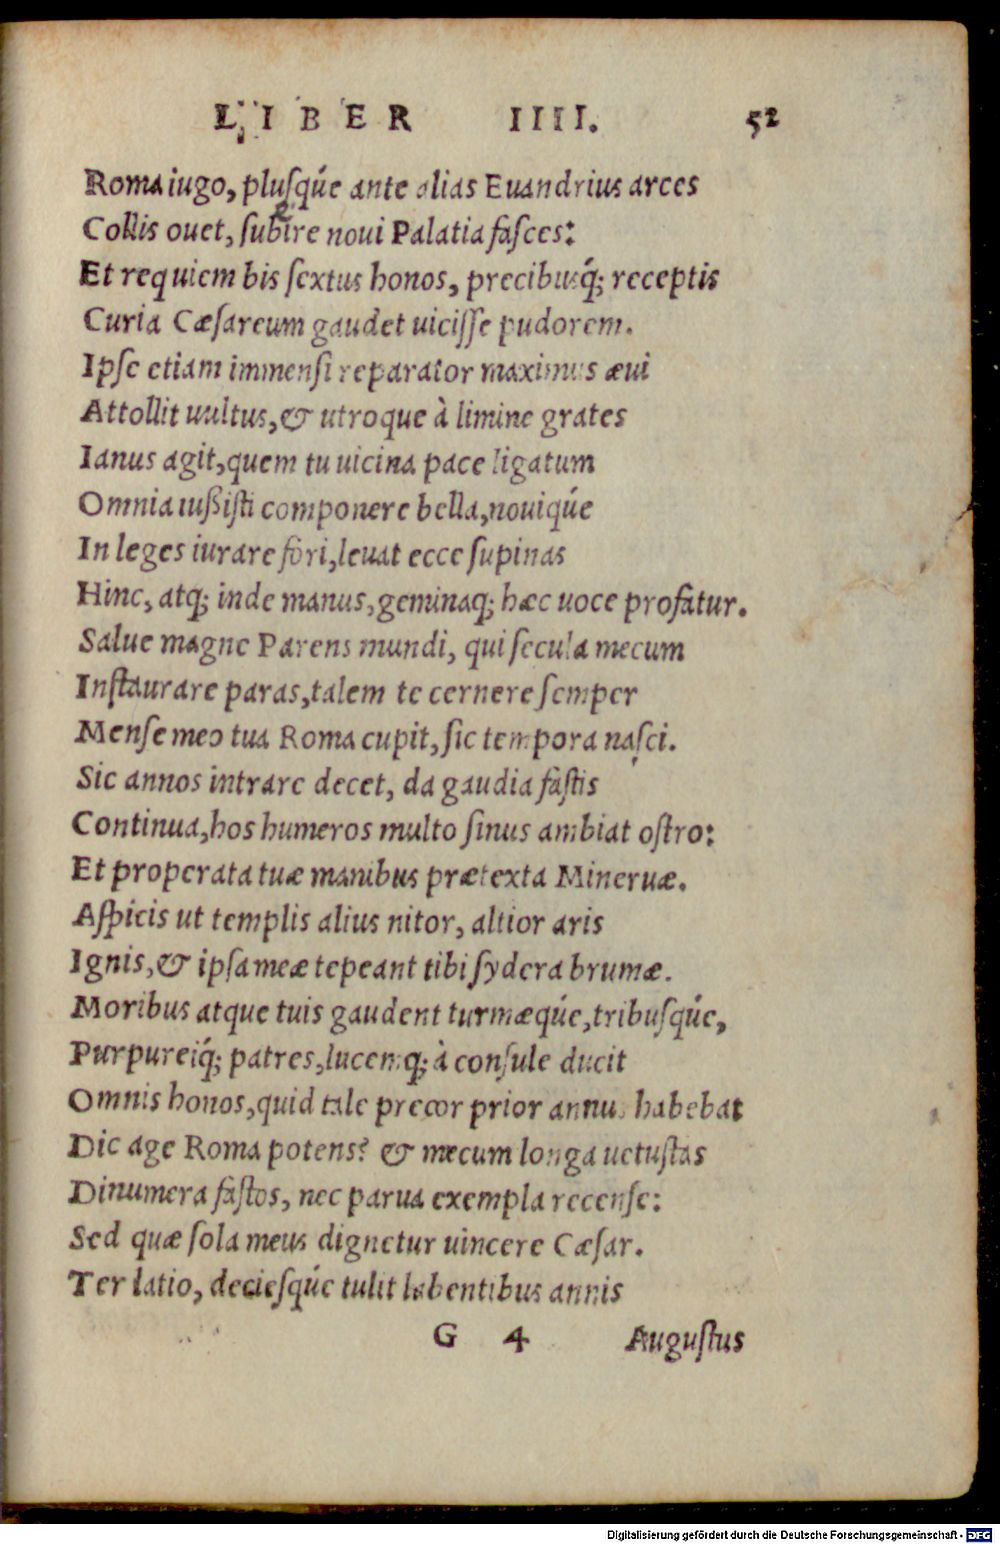 LIBER IIII. 52
Roma iugo, plusq́ue ante alias Euandrius arces
Collis ouet, subire noui Palatia fasces:
Et requiem bis sextus honos, precibusq́; receptis
Curia Cæsareum gaudet uicisse pudorem.
Ipse etiam immensi reparator maximus æui
Attollit uultus, & utroque à limine grates
Ianus agit, quem tu uicina pace ligatum
Omnia iußisti componere bella, nouiq́ue
In leges iurare fori, leuat ecce supinas
Hinc, atq; inde manus, geminaq; hæc uoce profatur.
Salue magne Parens mundi, qui secula mecum
Instaurare paras, talem te cernere semper
Mense meo tua Roma cupit, sic tempora nasci.
Sic annos intrare decet, da gaudia fastis
Continua, hos humeros multo sinus ambiat ostro:
Et properata tuæ manibus prætexta Mineruæ.
Aspicis ut templis alius nitor, altior aris
Ignis, & ipsa meæ tepeant tibi sydera brumæ.
Moribus atque tuis gaudent turmæq́ue, tribusq́ue,
Purpureiq́; patres, lucemq; à consule ducit
Omnis honos, quid tale precor prior annus habebat
Dic age Roma potens? & mecum longa uetustas
Dinumera fastos, nec parua exempla recense:
Sed quæ sola meus dignetur uincere Cæsar.
Ter latio, deciesq́ue tulit labentibus annis
G 4 Augustus
Digitalisierung gefördert durch die Deutsche Forschungsgemeinschaft - DFG